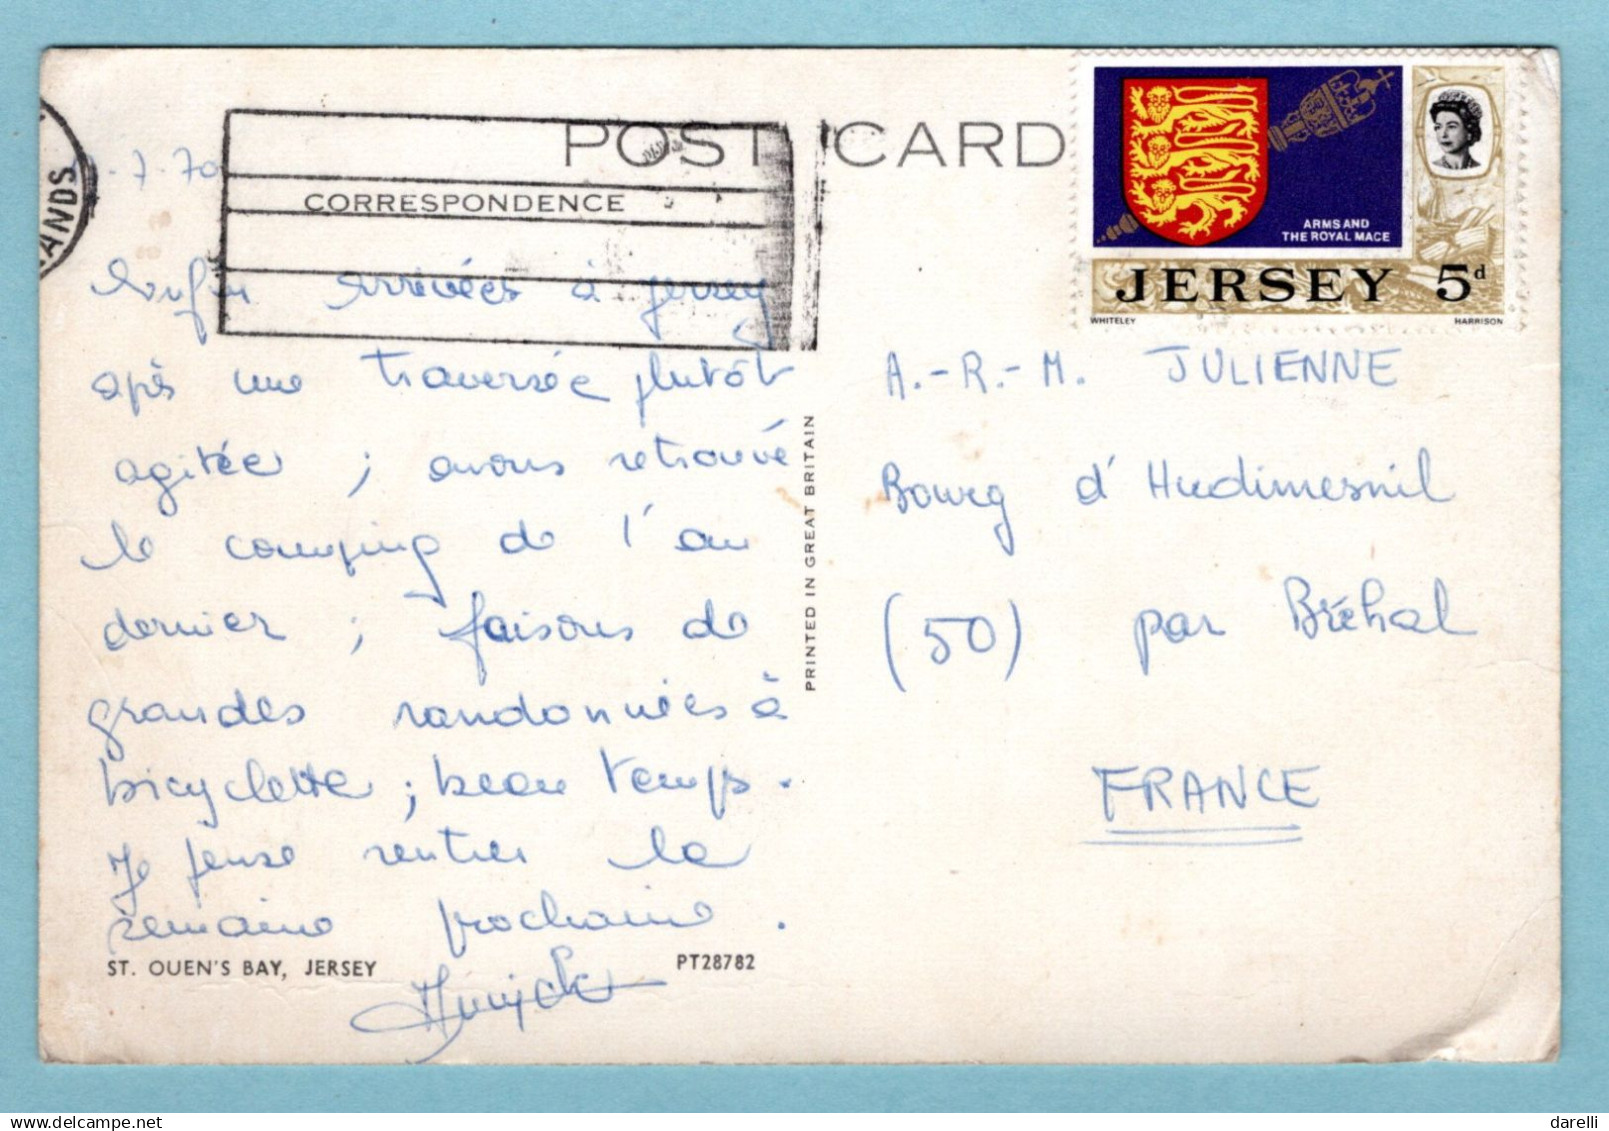 POST CARD
ANDS
7.70
CORRESPONDENCE
ARMS AND
THE ROYAL MACE
JERSEY 5d
WHITELEY
HARRISON
Enfin arrivées à Jersey
après une traversée plutôt
agitée ; avons retrouvé
le camping de l'an
dernier ; faisons de
grandes randonnées à
bicyclette ; beau temps.
Je pense rentrer la
semaine prochaine.
ST. OUEN'S BAY, JERSEY
PT28782
PRINTED IN GREAT BRITAIN
A.-R.-M. JULIENNE
Bourg d'Hudimesnil
(50) par Bréhal
FRANCE
darelli ©